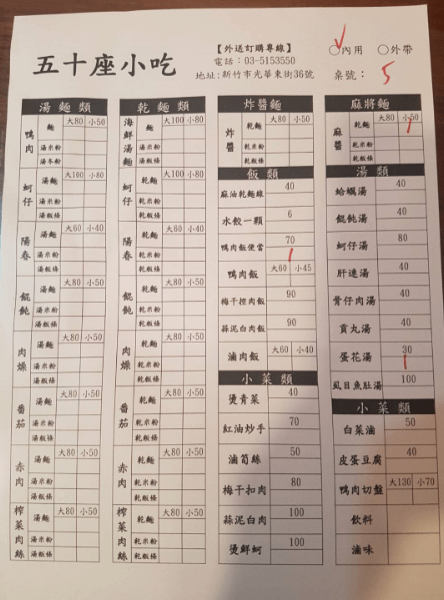 五十座小吃
【外送訂購專線】
電話：03-5153550
地址:新竹市光華東街36號
✓○內用 ○外帶
桌號： 5
湯麵類
鴨肉 麵 大80 小50
湯米粉
湯冬粉
蚵仔 湯麵 大100 小80
湯米粉
湯粄條
陽春 湯麵 大60 小40
湯米粉
湯粄條
餛飩 湯麵 大80 小50
湯米粉
湯粄條
肉燥 湯麵 大80 小50
湯米粉
湯粄條
番茄 湯麵 大80 小50
湯米粉
湯粄條
赤肉 湯麵 大80 小50
湯米粉
湯粄條
榨菜肉絲 湯麵 大80 小50
湯米粉
湯粄條
乾麵類
海鮮湯麵 麵 大100 小80
湯米粉
湯粄條
蚵仔 乾麵 大100 小80
乾米粉
乾粄條
陽春 乾麵 大60 小40
乾米粉
乾粄條
餛飩 乾麵 大80 小50
乾米粉
乾粄條
肉燥 乾麵 大80 小50
乾米粉
乾粄條
番茄 乾麵 大80 小50
乾米粉
乾粄條
赤肉 乾麵 大80 小50
乾米粉
乾粄條
榨菜肉絲 乾麵 大80 小50
乾米粉
乾粄條
炸醬麵
炸醬 乾麵 大80 小50
乾米粉
乾粄條
飯類
麻油乾麵線 40
水餃一顆 6
鴨肉飯便當 70
鴨肉飯 大60 小45
梅干控肉飯 90
蒜泥白肉飯 90
滷肉飯 大60 小40
小菜類
燙青菜 40
紅油炒手 70
滷筍絲 50
梅干扣肉 80
蒜泥白肉 100
燙鮮蚵 100
麻將麵
麻醬 乾麵 大80 小50
乾米粉
乾粄條
湯類
蛤蠣湯 40
餛飩湯 40
蚵仔湯 80
肝連湯 40
骨仔肉湯 40
貢丸湯 40
蛋花湯 30
虱目魚肚湯 100
小菜類
白菜滷 50
皮蛋豆腐 40
鴨肉切盤 大130 小70
飲料
滷味